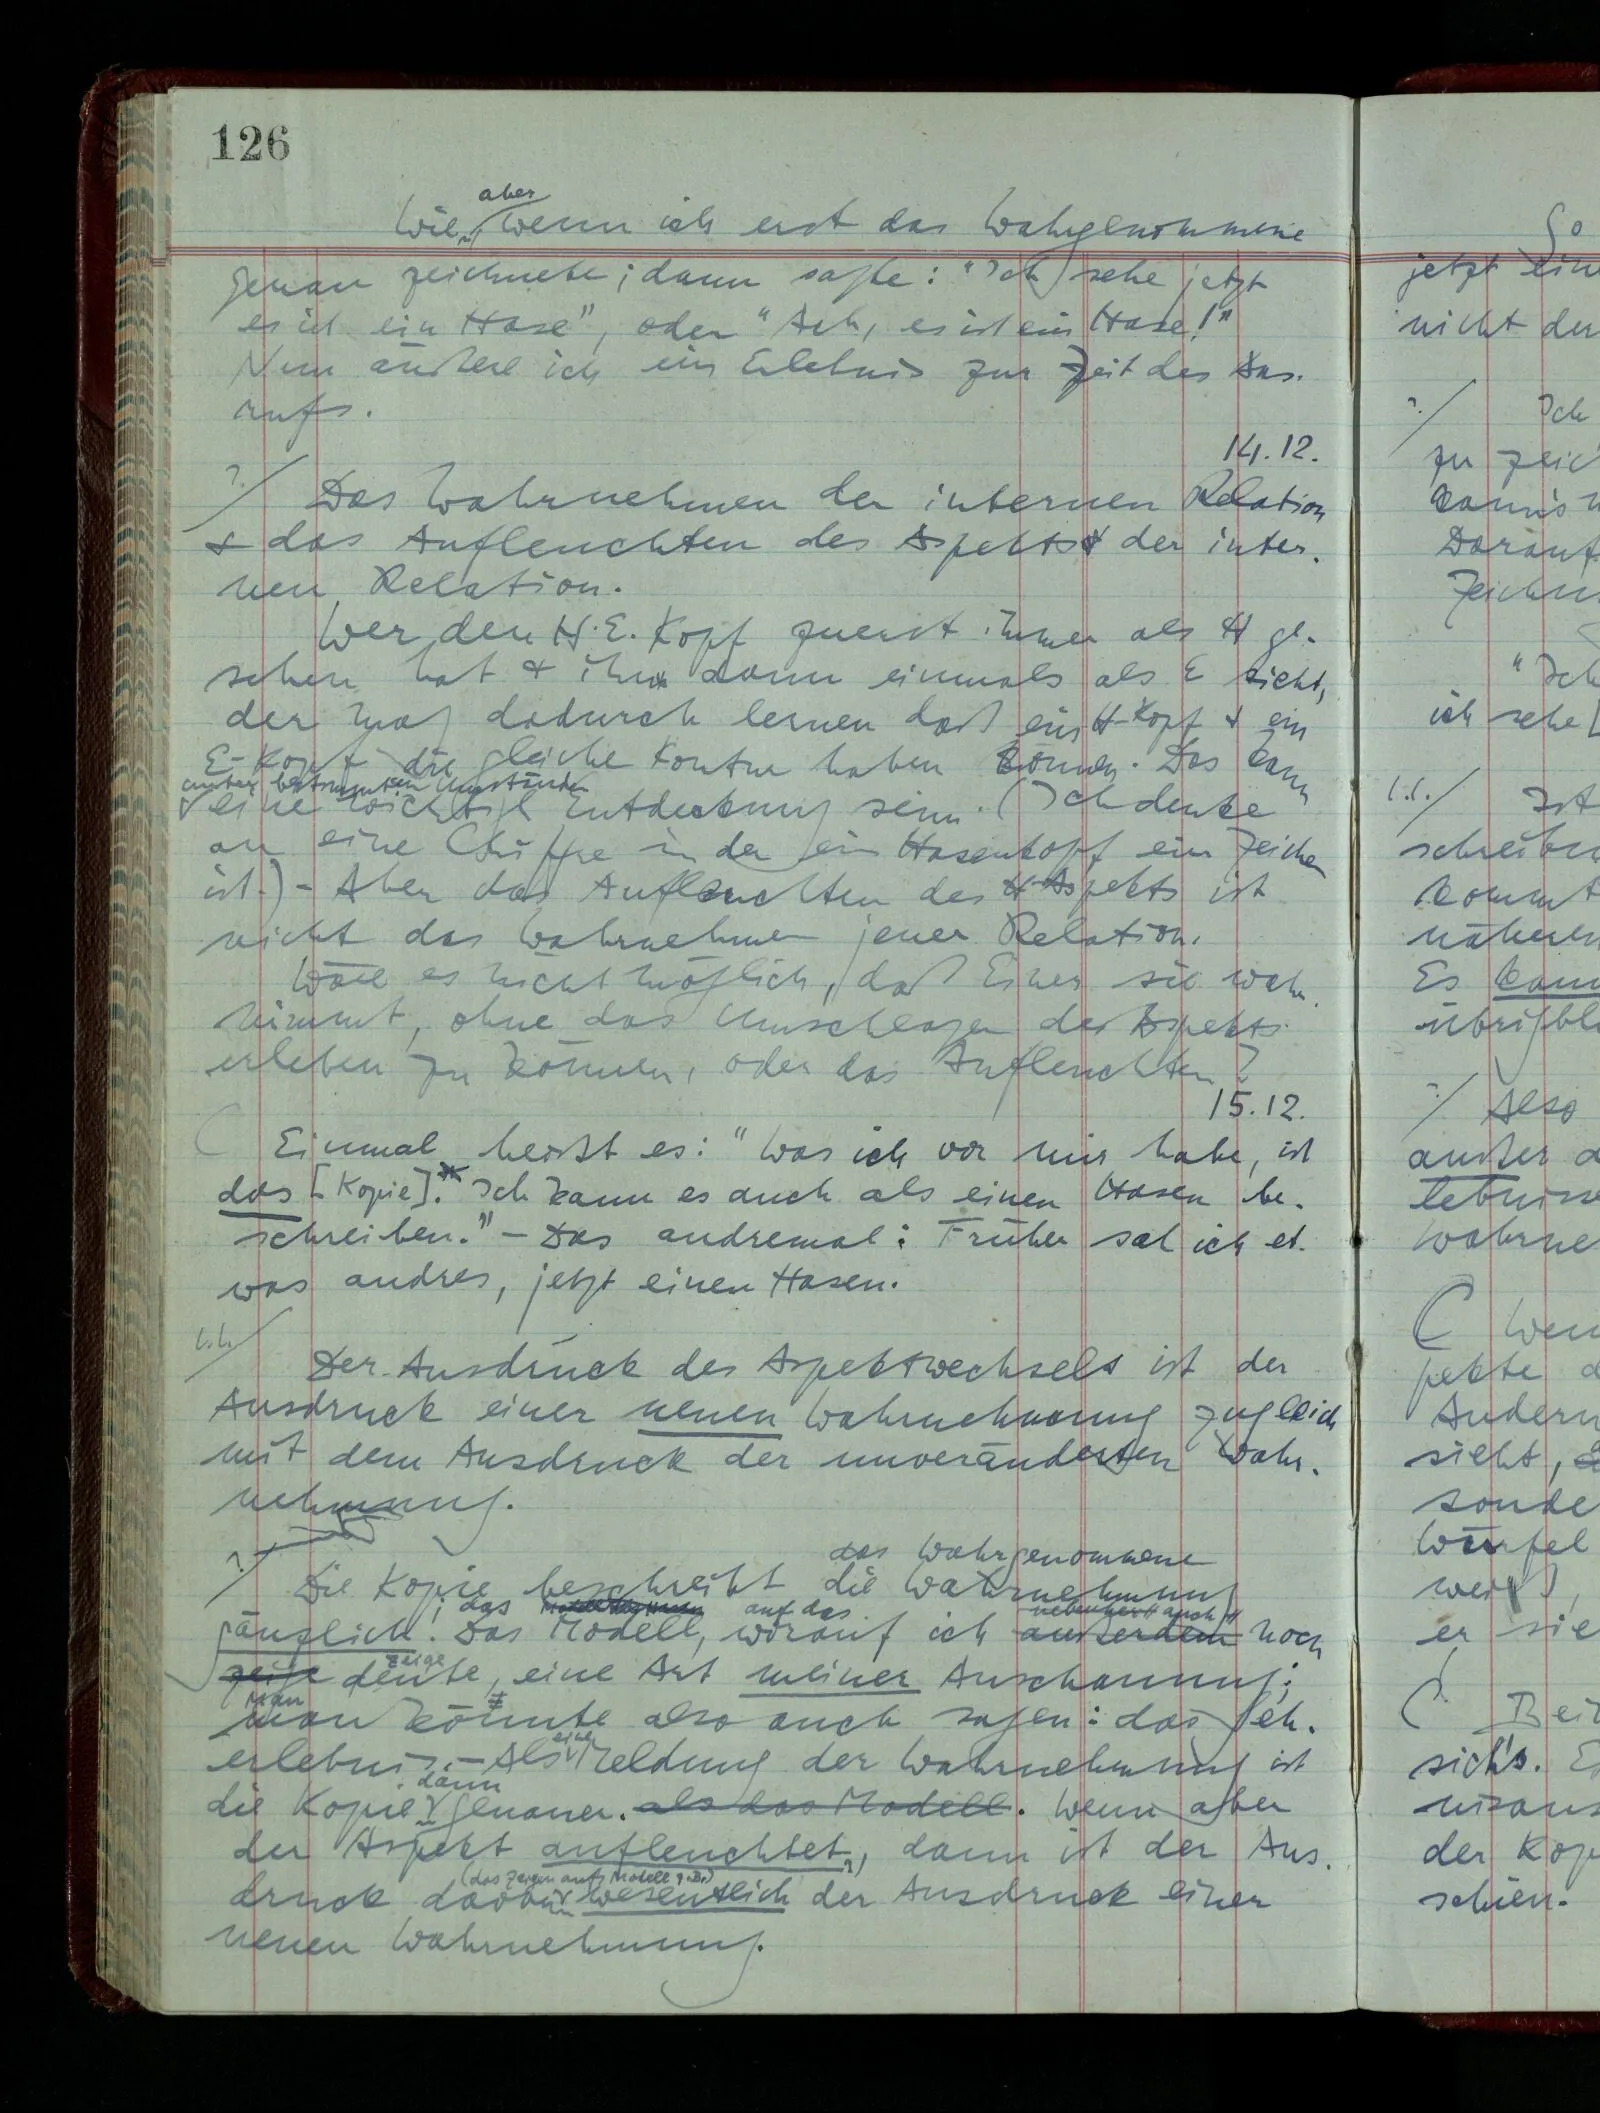 126
aber
Wie, wenn ich erst das Wahrgenommene
genau zeichnete; dann sagte: "Ich sehe jetzt
es ist ein Hase", oder "Ach, es ist ein Hase!"
Nun äußere ich ein Erlebnis zur Zeit des Aus-
rufs.
14.12.
?/ Das Wahrnehmen der internen Relation
& das Aufleuchten des Aspekts der inter-
nen Relation.
Wer den H.E. Kopf zuerst immer als H ge-
sehen hat & ihn dann einmals als E sieht,
der mag dadurch lernen daß ein H-Kopf & ein
E-Kopf die gleiche Kontur haben können. Das kann
unter bestimmten Umständen
eine wichtige Entdeckung sein. (Ich denke
an eine Chiffre in der ein Hasenkopf ein Zeichen
ist.) – Aber das Aufleuchten des H-Aspekts ist
nicht das Wahrnehmen jener Relation.
Wäre es nicht möglich, daß Einer sie wahr-
nimmt, ohne das Umschlagen des Aspekts
erleben zu können, oder das Aufleuchten?
15.12.
C Einmal heißt es: "Was ich vor mir habe, ist
das [Kopie]. Ich kann es auch als einen Hasen be-
schreiben." – Das andremal: Früher sah ich et-
was andres, jetzt einen Hasen.
Der Ausdruck des Aspektwechsels ist der
Ausdruck einer neuen Wahrnehmung zugleich
mit dem Ausdruck der unveränderten Wahr-
nehmung.
das Wahrgenommene
?/ Die Kopie beschreibt die Wahrnehmung
; das auf das nebenher auch
gänzlich. Das Modell, worauf ich außerdem noch
zeige
zeige deute, eine Art meiner Anschauung;
Man
man könnte also auch sagen: das Seh-
eine
erlebnis. – Als Meldung der Wahrnehmung ist
dann
die Kopie genauer. als das Modell. Wenn aber
der Aspekt aufleuchtet, dann ist der Aus-
(das Zeigen aufs Modell z.B.)
druck davon wesentlich der Ausdruck einer
neuen Wahrnehmung.
So
jetzt
nicht der
?/ Ich
zu
Darauf
"Ich
ich sehe
Ist
kommt
Es
?/ Also
außer
C
sieht,
er sie
C
sich's.
der
schien.